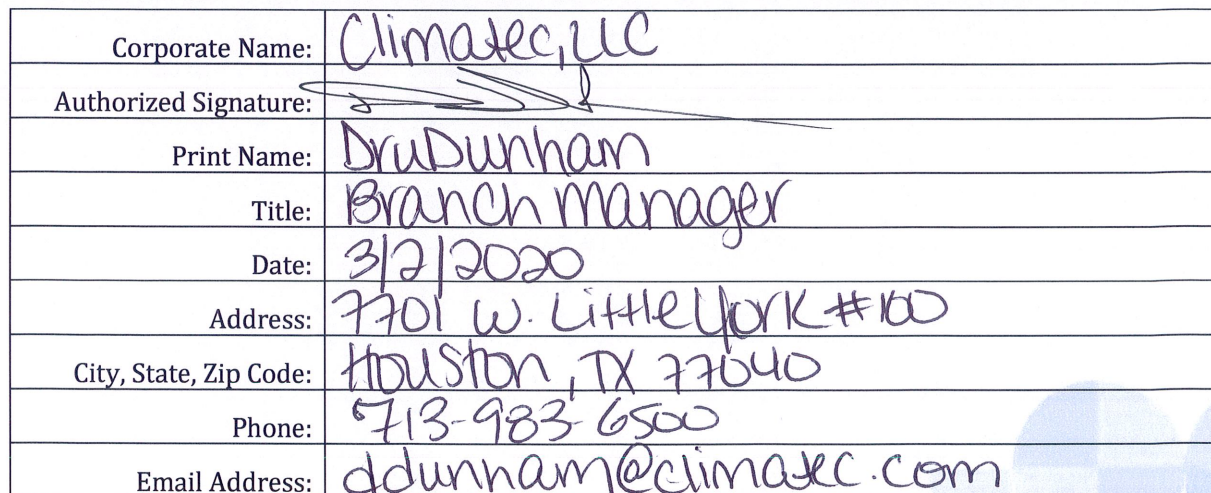 Corporate Name: Climatec, LLC
Authorized Signature:
Print Name: Dru Dunham
Title: Branch Manager
Date: 3/2/2020
Address: 7701 W. Little York #100
City, State, Zip Code: Houston, TX 77040
Phone: 713-983-6500
Email Address: ddunham@climatec.com